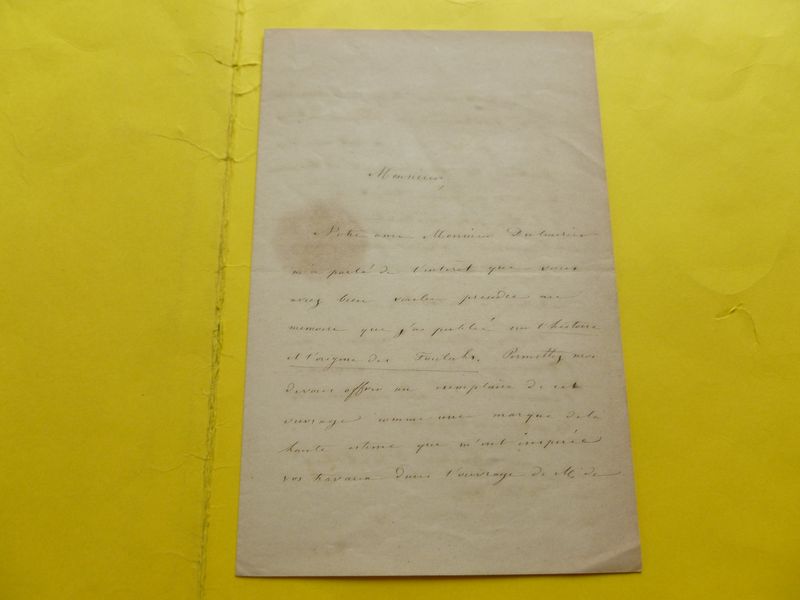 Monsieur,
Notre ami Monsieur Dulaurier
m'a parlé de l'intérêt que vous
avez bien voulu prendre au
mémoire que j'ai publié sur l'histoire
et l'origine des Foulahs. Permettez moi
de vous offrir un exemplaire de cet
ouvrage comme une marque de la
haute estime que m'ont inspirée
vos travaux dans l'ouvrage de Mr de